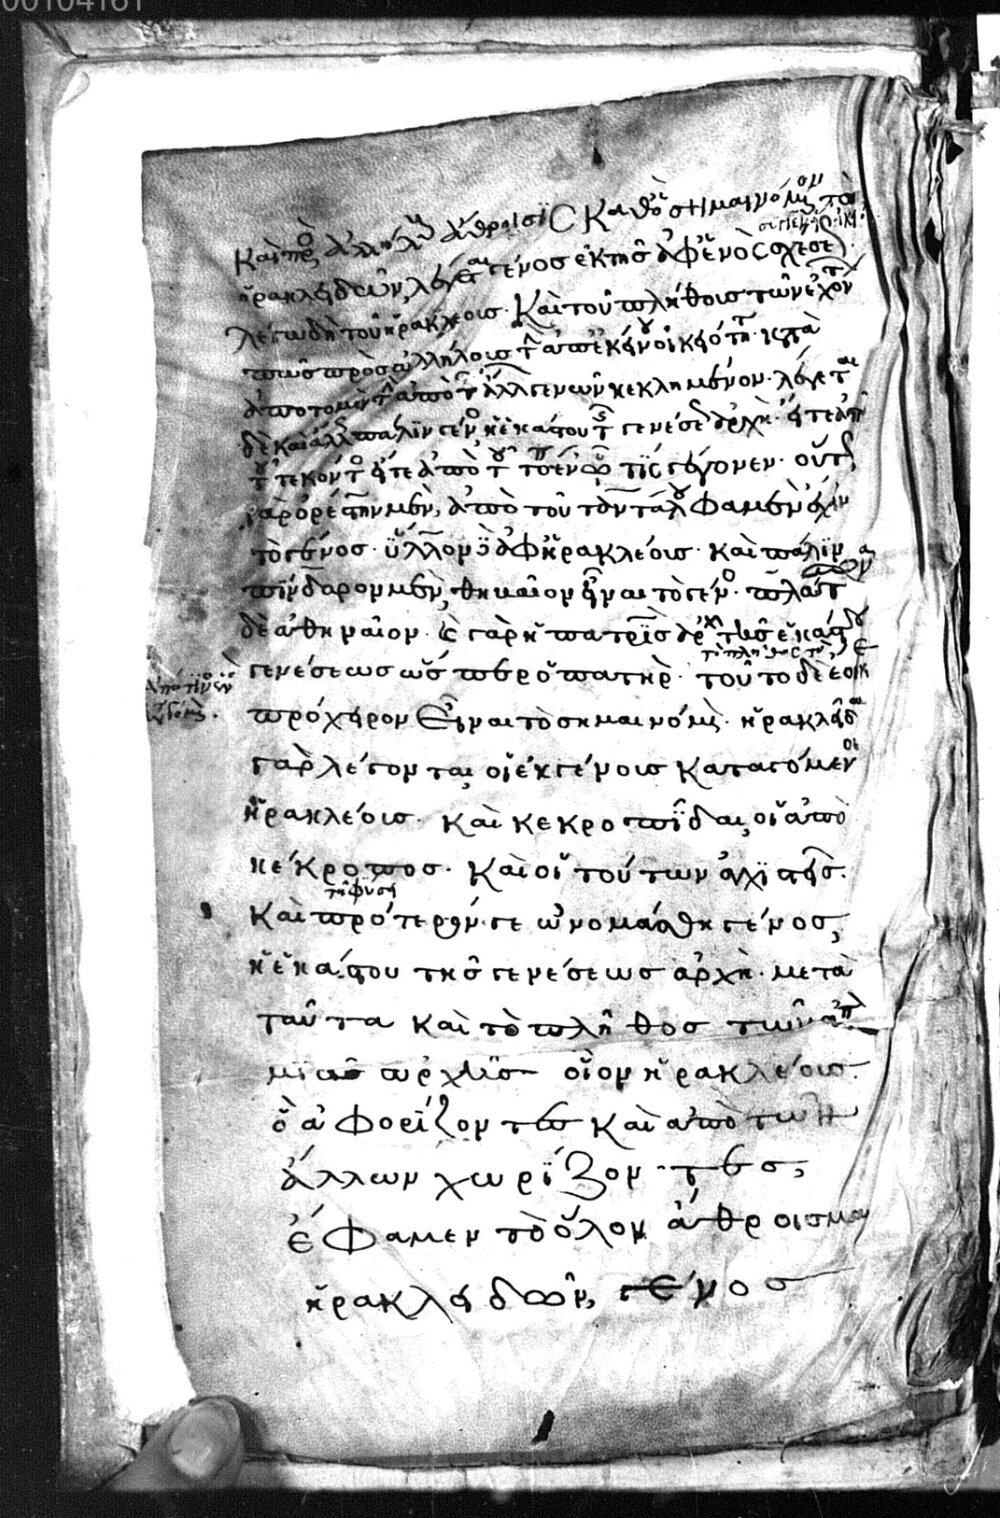 00104161
καὶ πρὸς ἀλλήλους ἄθροισις καθ' ὃ σημαινόμενον τὸ
ἡρακλειδῶν λέγεται γένος ἐκ τῆς ἀφ' ἑνὸς σχέσεως
λέγω δὴ τοῦ ἡρακλέους· καὶ τοῦ πλήθους τῶν ἐχόντων
πως πρὸς ἀλλήλους τὴν ἀπ' ἐκείνου οἰκειότητα· κατὰ
ἀποτομὴν τὴν ἀπὸ τῶν ἄλλων γενῶν κεκλημένον· λέγεται
δὲ καὶ ἄλλως πάλιν γένος ἡ ἑκάστου τῆς γενέσεως ἀρχὴ· εἴτε ἀπὸ
τοῦ τεκόντος εἴτε ἀπὸ τοῦ τόπου ἐν ᾧ τις γέγονεν· οὕτως
γὰρ ὀρέστην μὲν, ἀπὸ τοῦ ταντάλου φαμὲν ἔχειν
τὸ γένος· ὕλλον δὲ ἀφ' ἡρακλέους· καὶ πάλιν
πίνδαρον μὲν, θηβαῖον εἶναι τὸ γένος· πλάτωνα
δὲ ἀθηναῖον· καὶ γὰρ ἡ πατρὶς ἀρχή τίς ἐστι τῆς ἑκάστου
γενέσεως ὥσπερ ὁ πατήρ· τοῦτο δὲ ἔοικε
πρόχειρον εἶναι τὸ σημαινόμενον· ἡρακλεῖδαι
γὰρ λέγονται, οἱ ἐκ γένους καταγόμενοι
ἡρακλέους· καὶ κεκροπίδαι, οἱ ἀπὸ
κέκροπος· καὶ οἱ τούτων ἀγχιστεῖς.
τῇ φύσει
καὶ πρότερόν γε ὠνομάσθη γένος,
ἡ ἑκάστου τῆς γενέσεως ἀρχὴ· μετὰ
ταῦτα καὶ τὸ πλῆθος τῶν ἀπὸ
μιᾶς ἀρχῆς οἷον ἡρακλέους.
ὃ ἀφορίζοντες καὶ ἀπὸ τῶν
ἄλλων χωρίζοντες,
ἔφαμεν τὸ ὅλον ἄθροισμα
ἡρακλειδῶν, γένος